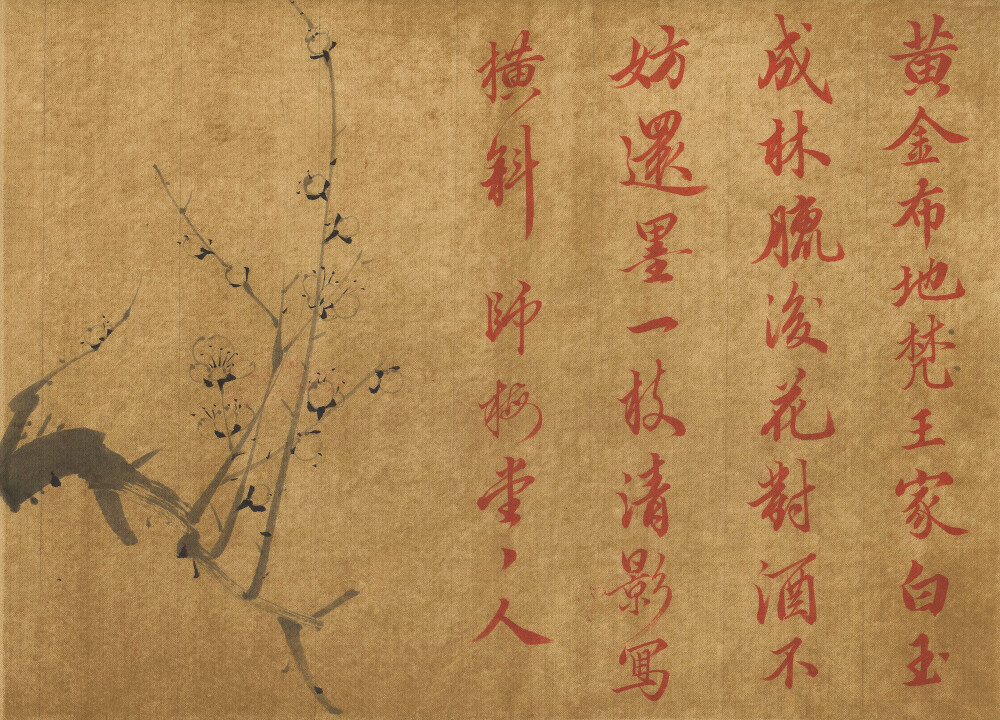 黄金布地梵王家白玉
成林臘後花對酒不
妨還墨一枝清影寫
橫斜 師梅堂丶人